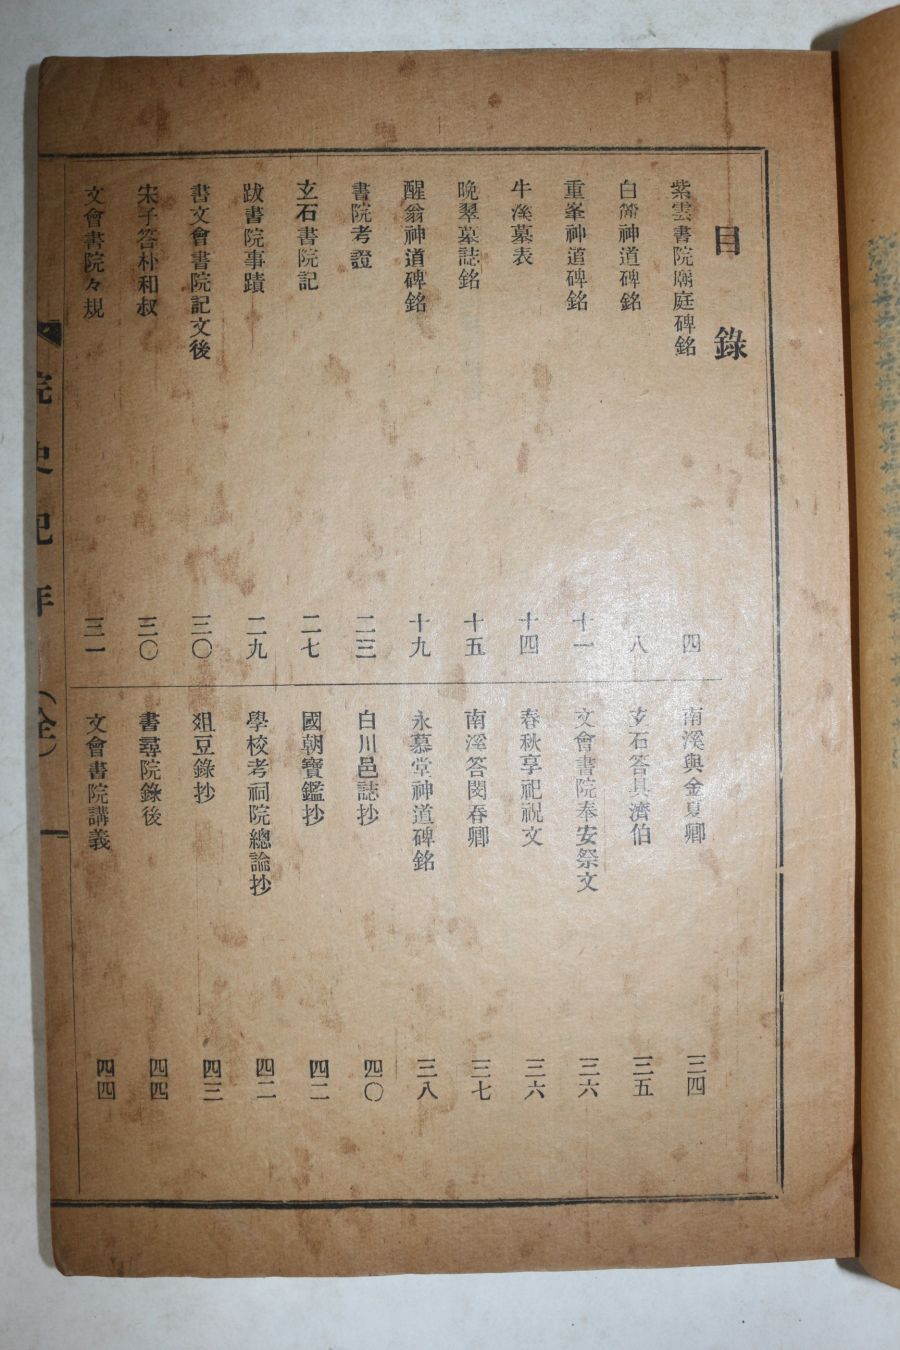 目錄
紫雲書院廟庭碑銘 四
白﨎神道碑銘 八
重峯神道碑銘 十一
牛溪墓表 十四
晩翠墓誌銘 十五
醒翁神道碑銘 十九
書院考證 二三
玄石書院記 二七
跋書院事蹟 二九
書文會書院記文後 三〇
宋子答朴和叔 三〇
文會書院々規 三一
南溪與金夏卿 三四
玄石答具濟伯 三五
文會書院奉安祭文 三六
春秋享祀祝文 三六
南溪答閔春卿 三七
永慕堂神道碑銘 三八
白川邑誌抄 四〇
國朝寶鑑抄 四二
學校考祠院總論抄 四二
爼豆錄抄 四三
書尋院錄後 四四
文會書院講義 四四
院史紀年(全) 一